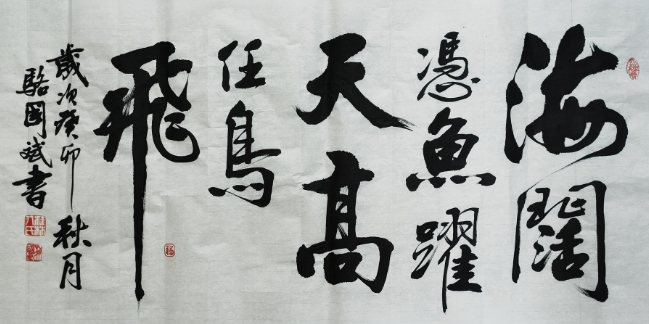 海闊
憑魚躍
天高
任鳥
飛
歲次癸卯秋月
駱國斌書